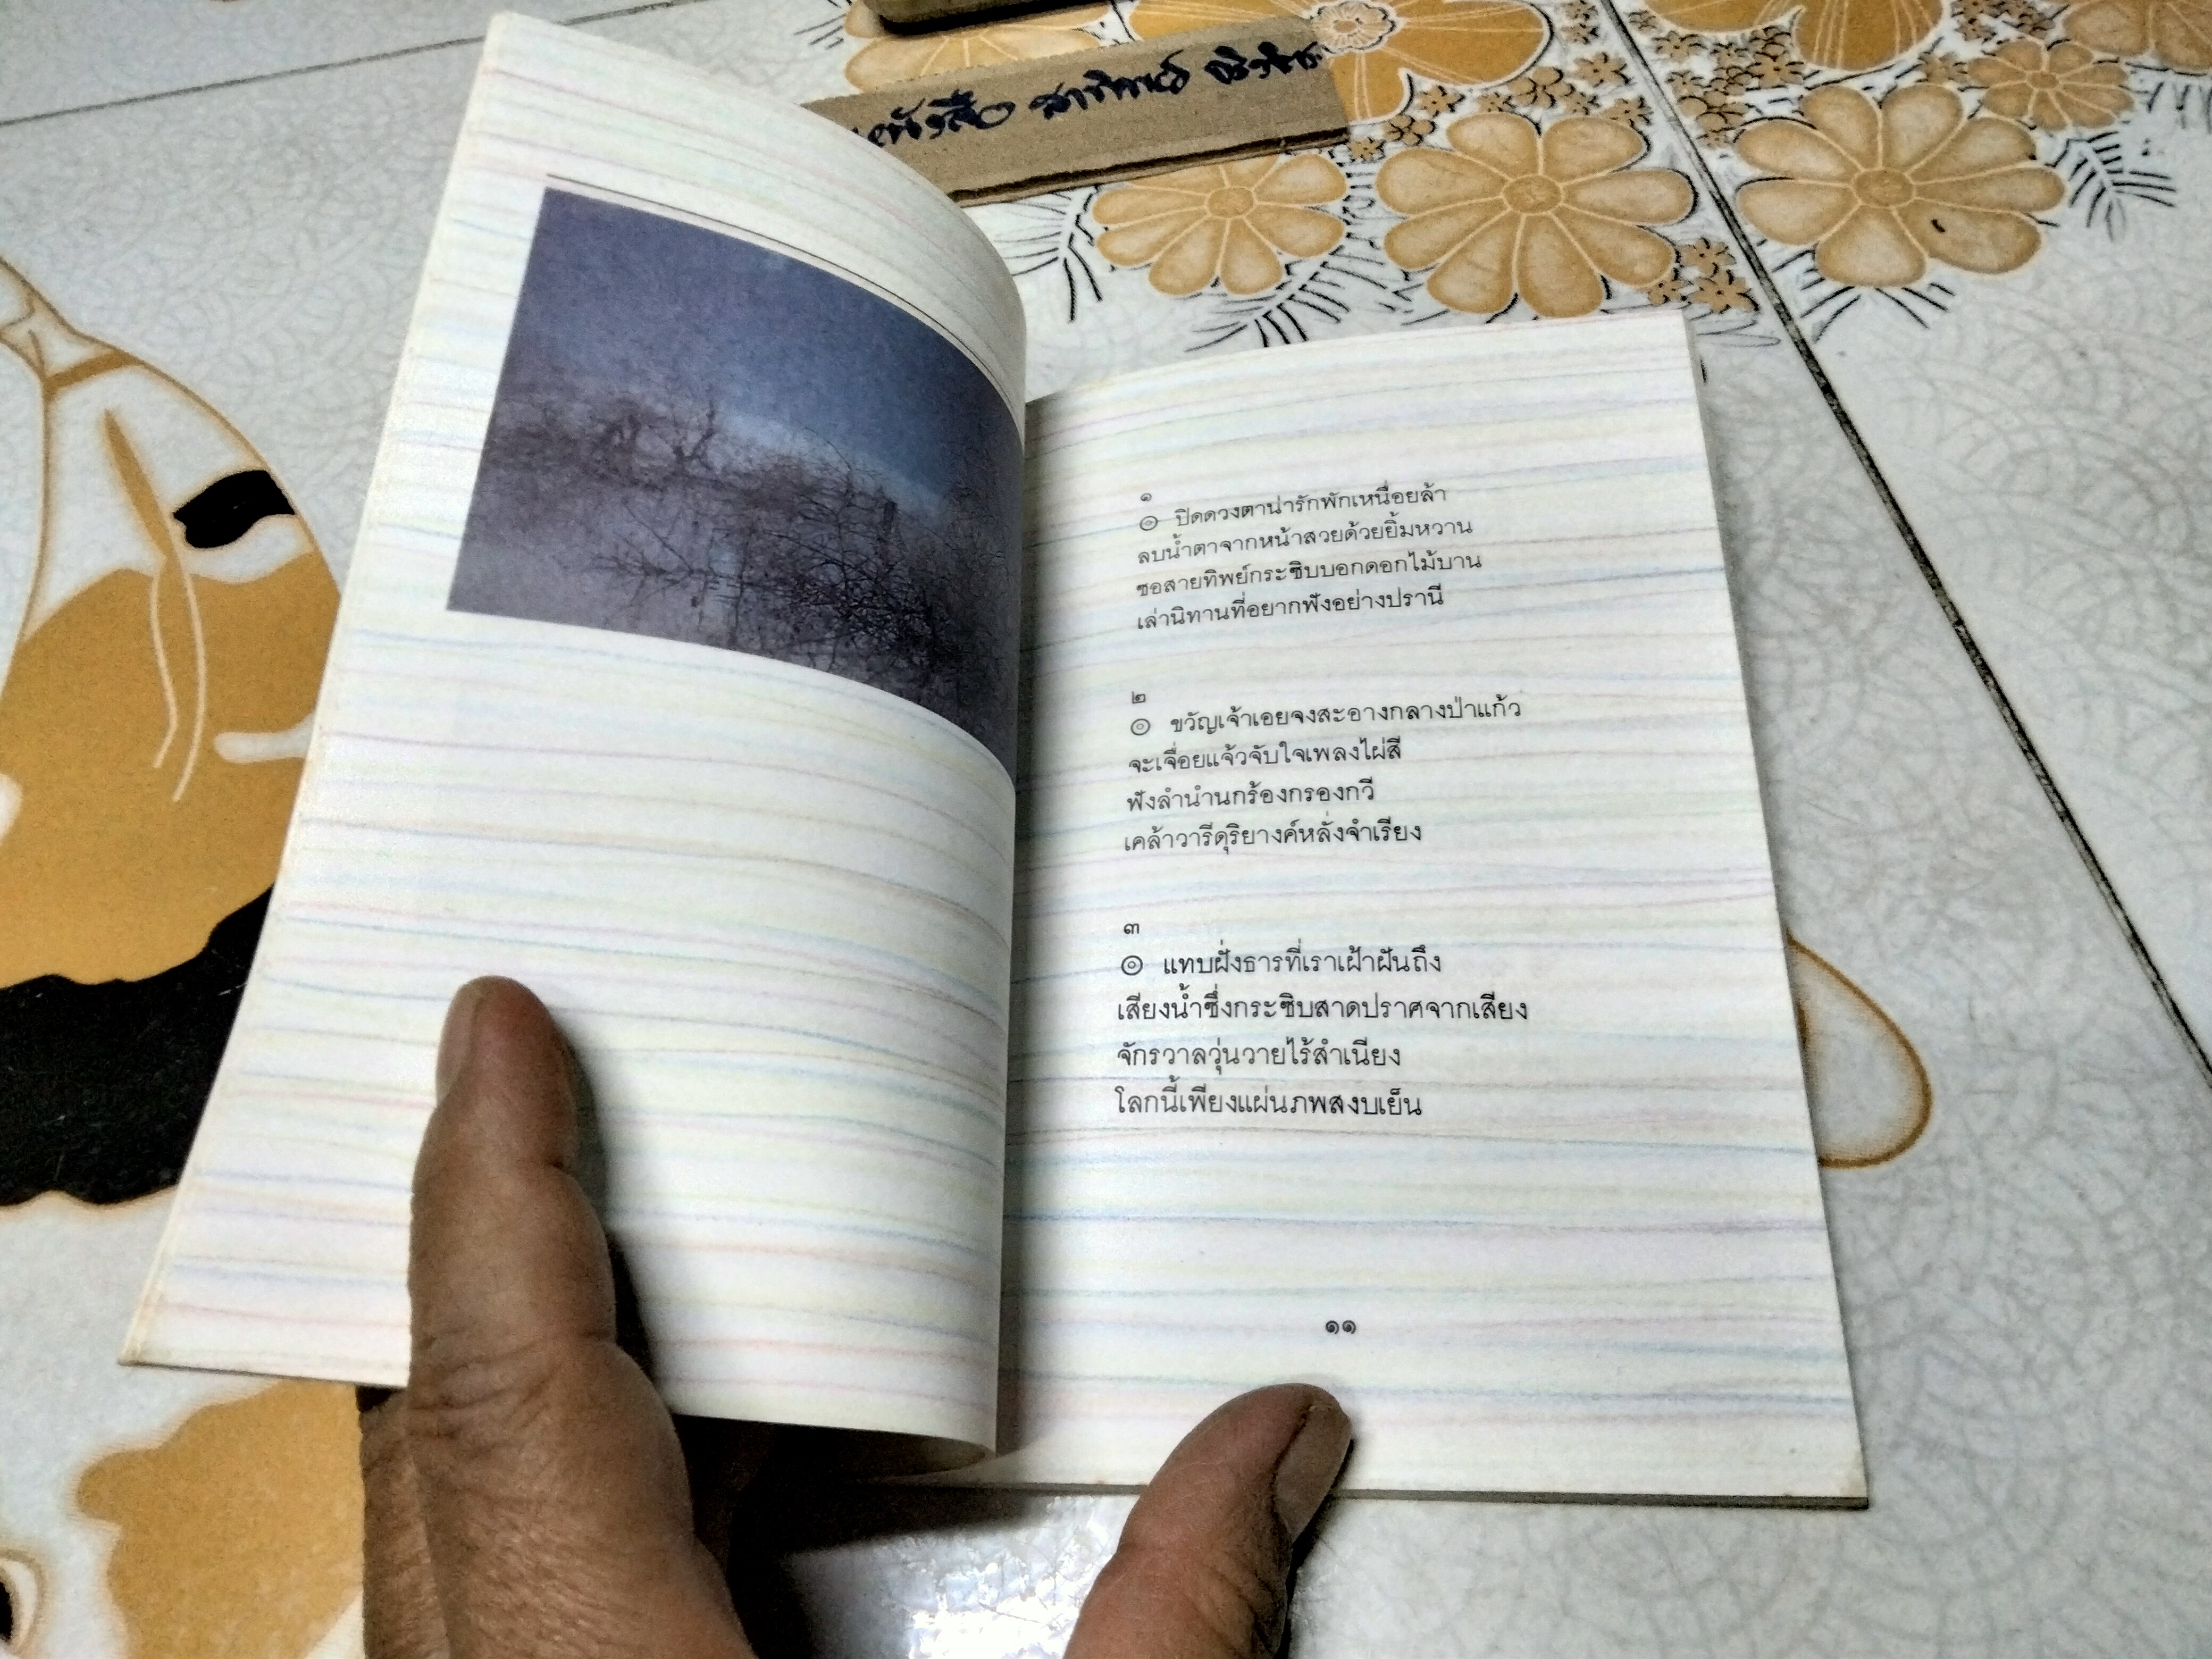 หนังสือ
๑
๏ ปิดดวงตาน่ารักพักเหนื่อยล้า
ลบน้ำตาจากหน้าสวยด้วยยิ้มหวาน
ซอสายทิพย์กระซิบบอกดอกไม้บาน
เล่านิทานที่อยากฟังอย่างปรานี
๒
๏ ขวัญเจ้าเอยจงสะอางกลางป่าแก้ว
จะเจื่อยแจ้วจับใจเพลงไผ่สี
ฟังลำนำนกร้องกรองกวี
เคล้าวารีดุริยางค์หลั่งจำเรียง
๓
๏ แทบฝั่งธารที่เราเฝ้าฝันถึง
เสียงน้ำซึ่งกระซิบสาดปราศจากเสียง
จักรวาลวุ่นวายไร้สำเนียง
โลกนี้เพียงแผ่นภพสงบเย็น
๑๑